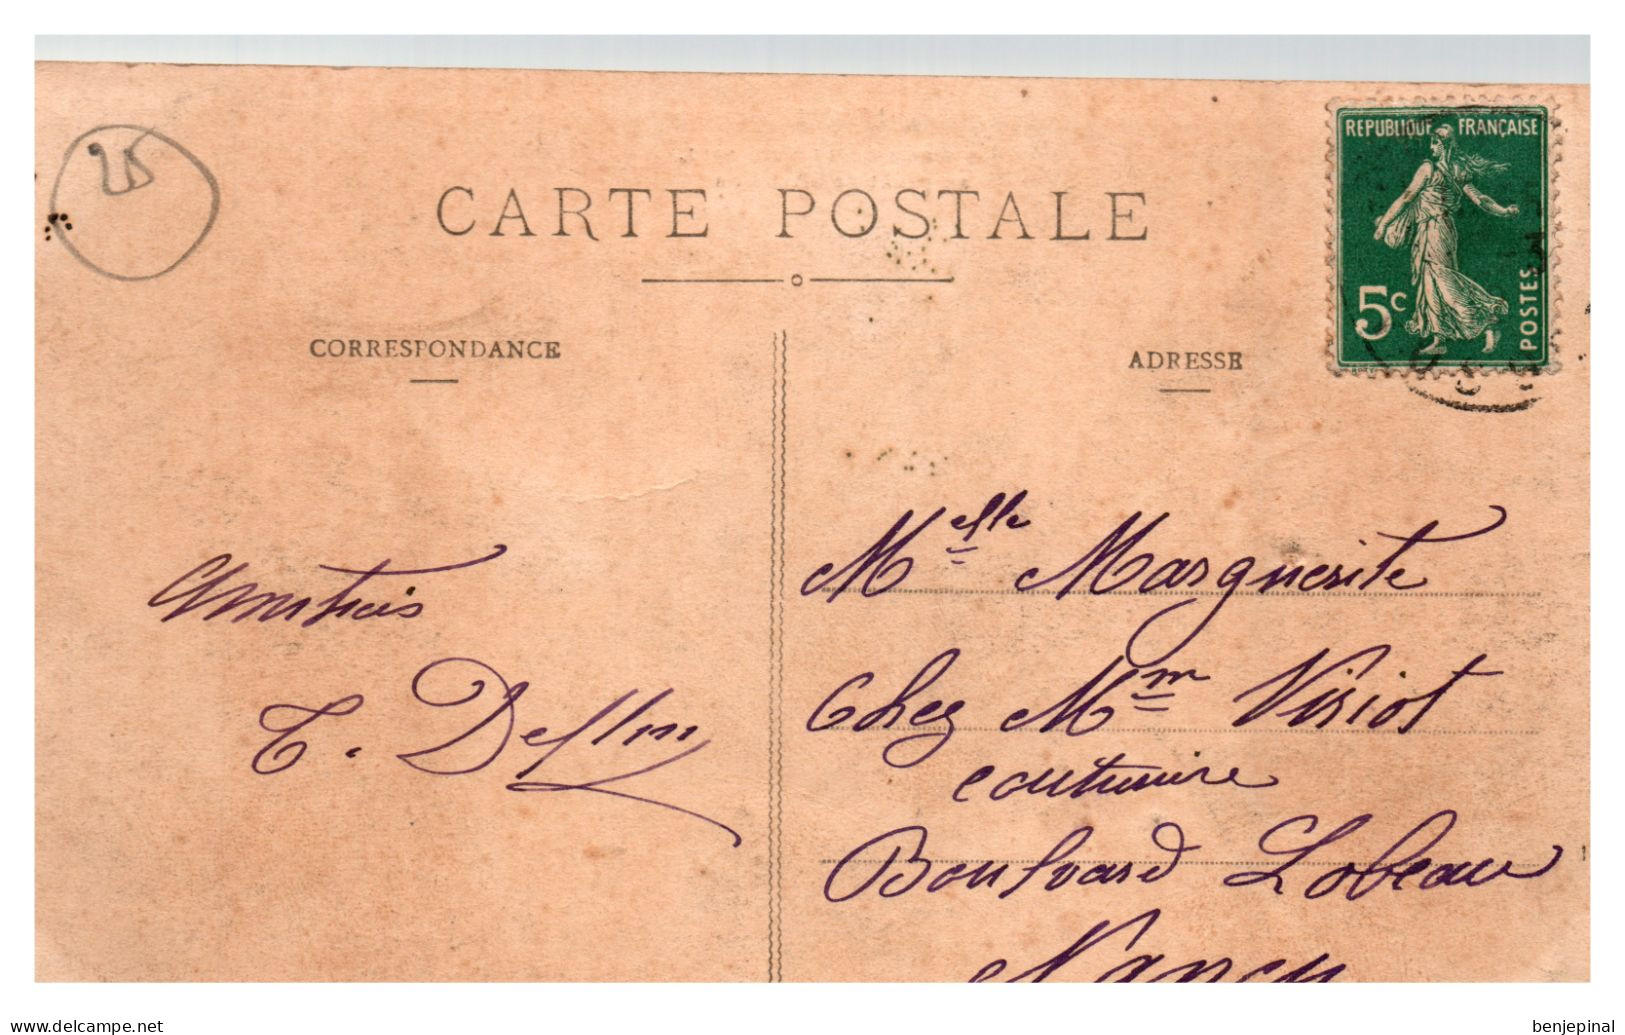 CARTE POSTALE
CORRESPONDANCE
ADRESSE
REPUBLIQUE FRANÇAISE
5c
POSTES
T.
Melle Marguerite
Chez Mm Viriot
couturière
Boulevard Lobeau
Nancy
www.delcampe.net
benjepinal